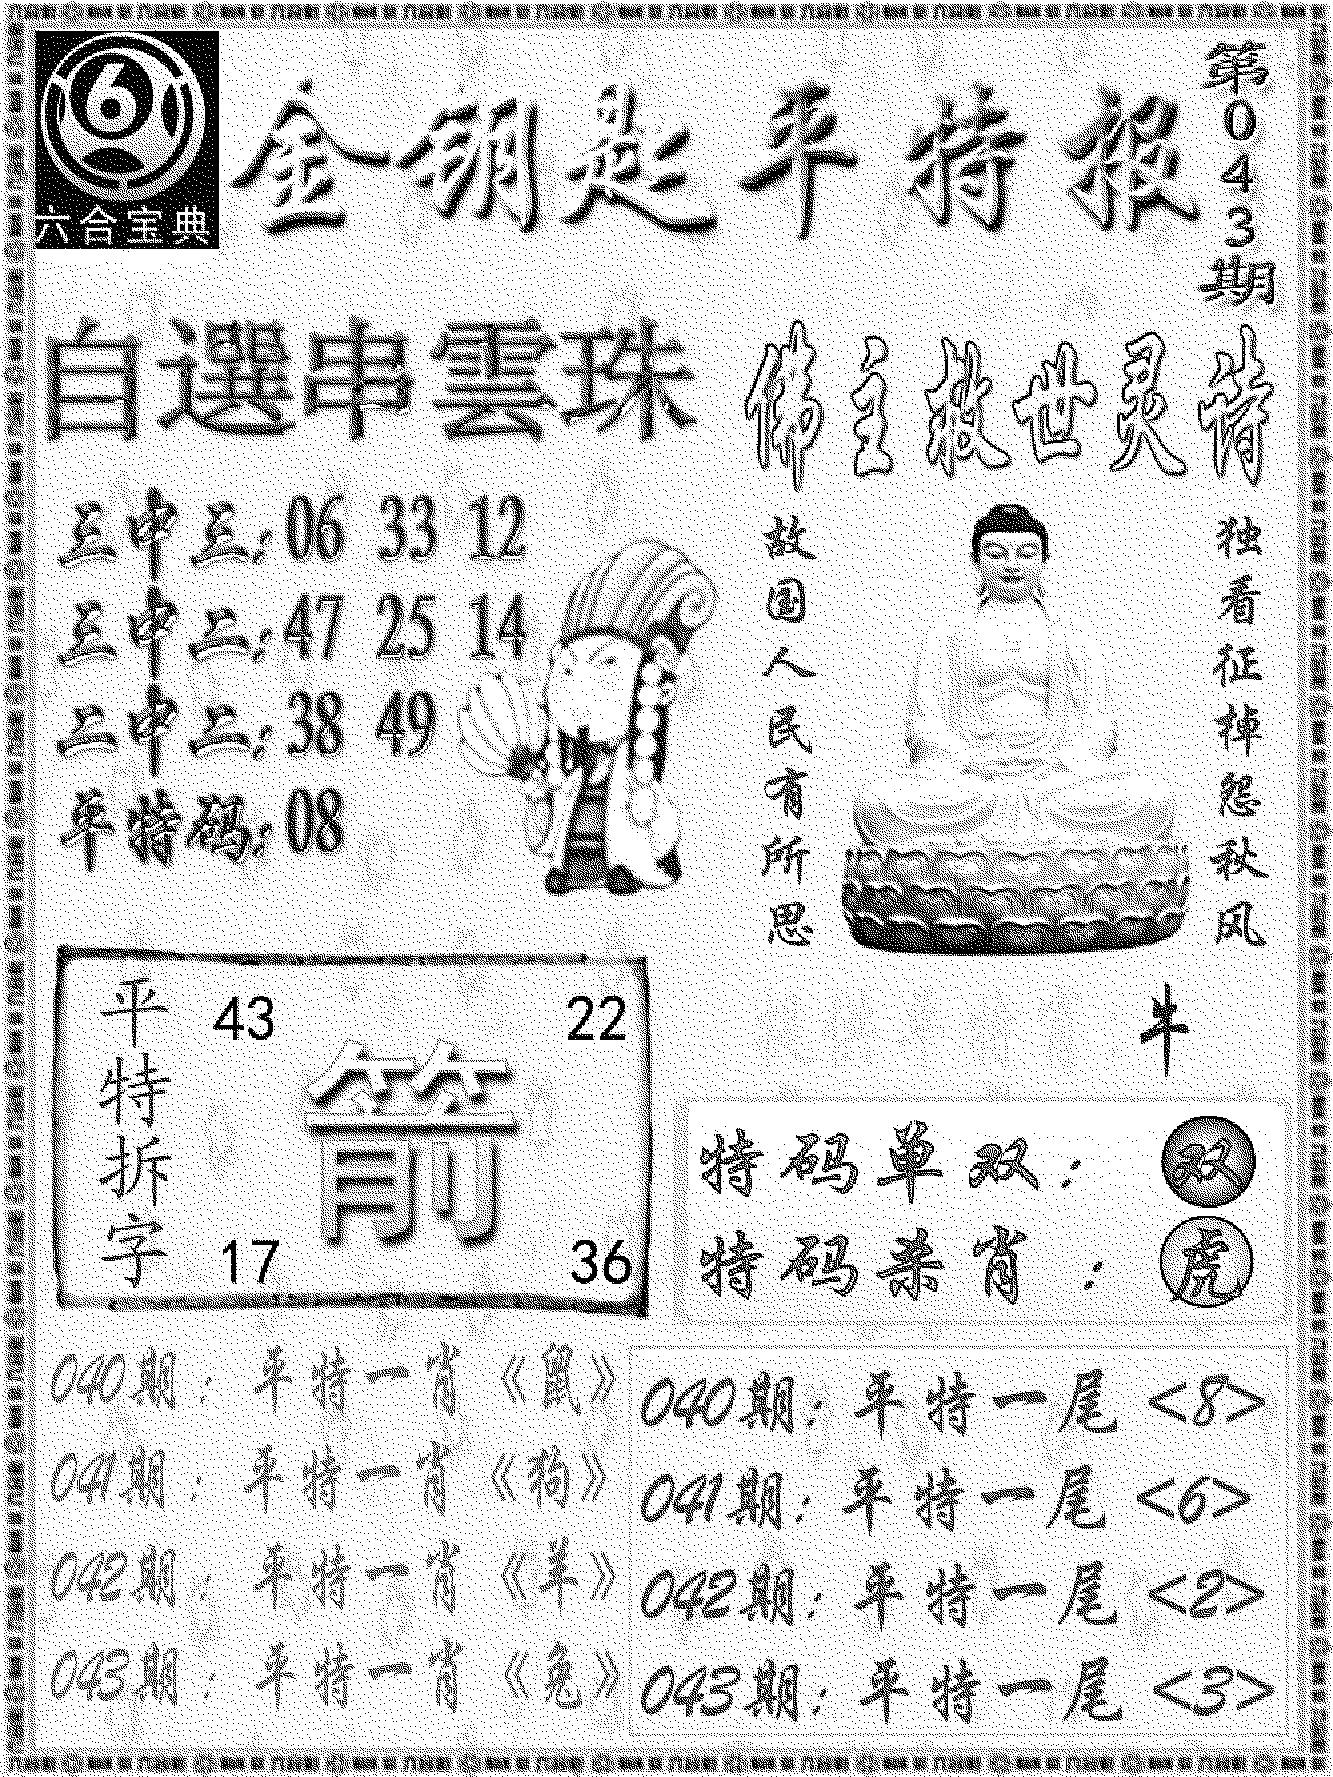 六合宝典
金钥匙平特报
第043期
自選串雲珠
三中三:06 33 12
三中二:47 25 14
二中二:38 49
平特码:08
佛主救世灵诗
故国人民有所思
独看征掉怨秋风
牛
平特拆字
43 22
箭
17 36
特码单双:双
特码杀肖:虎
040期:平特一肖《鼠》
041期:平特一肖《狗》
042期:平特一肖《羊》
043期:平特一肖《兔》
040期:平特一尾<8>
041期:平特一尾<6>
042期:平特一尾<2>
043期:平特一尾<3>